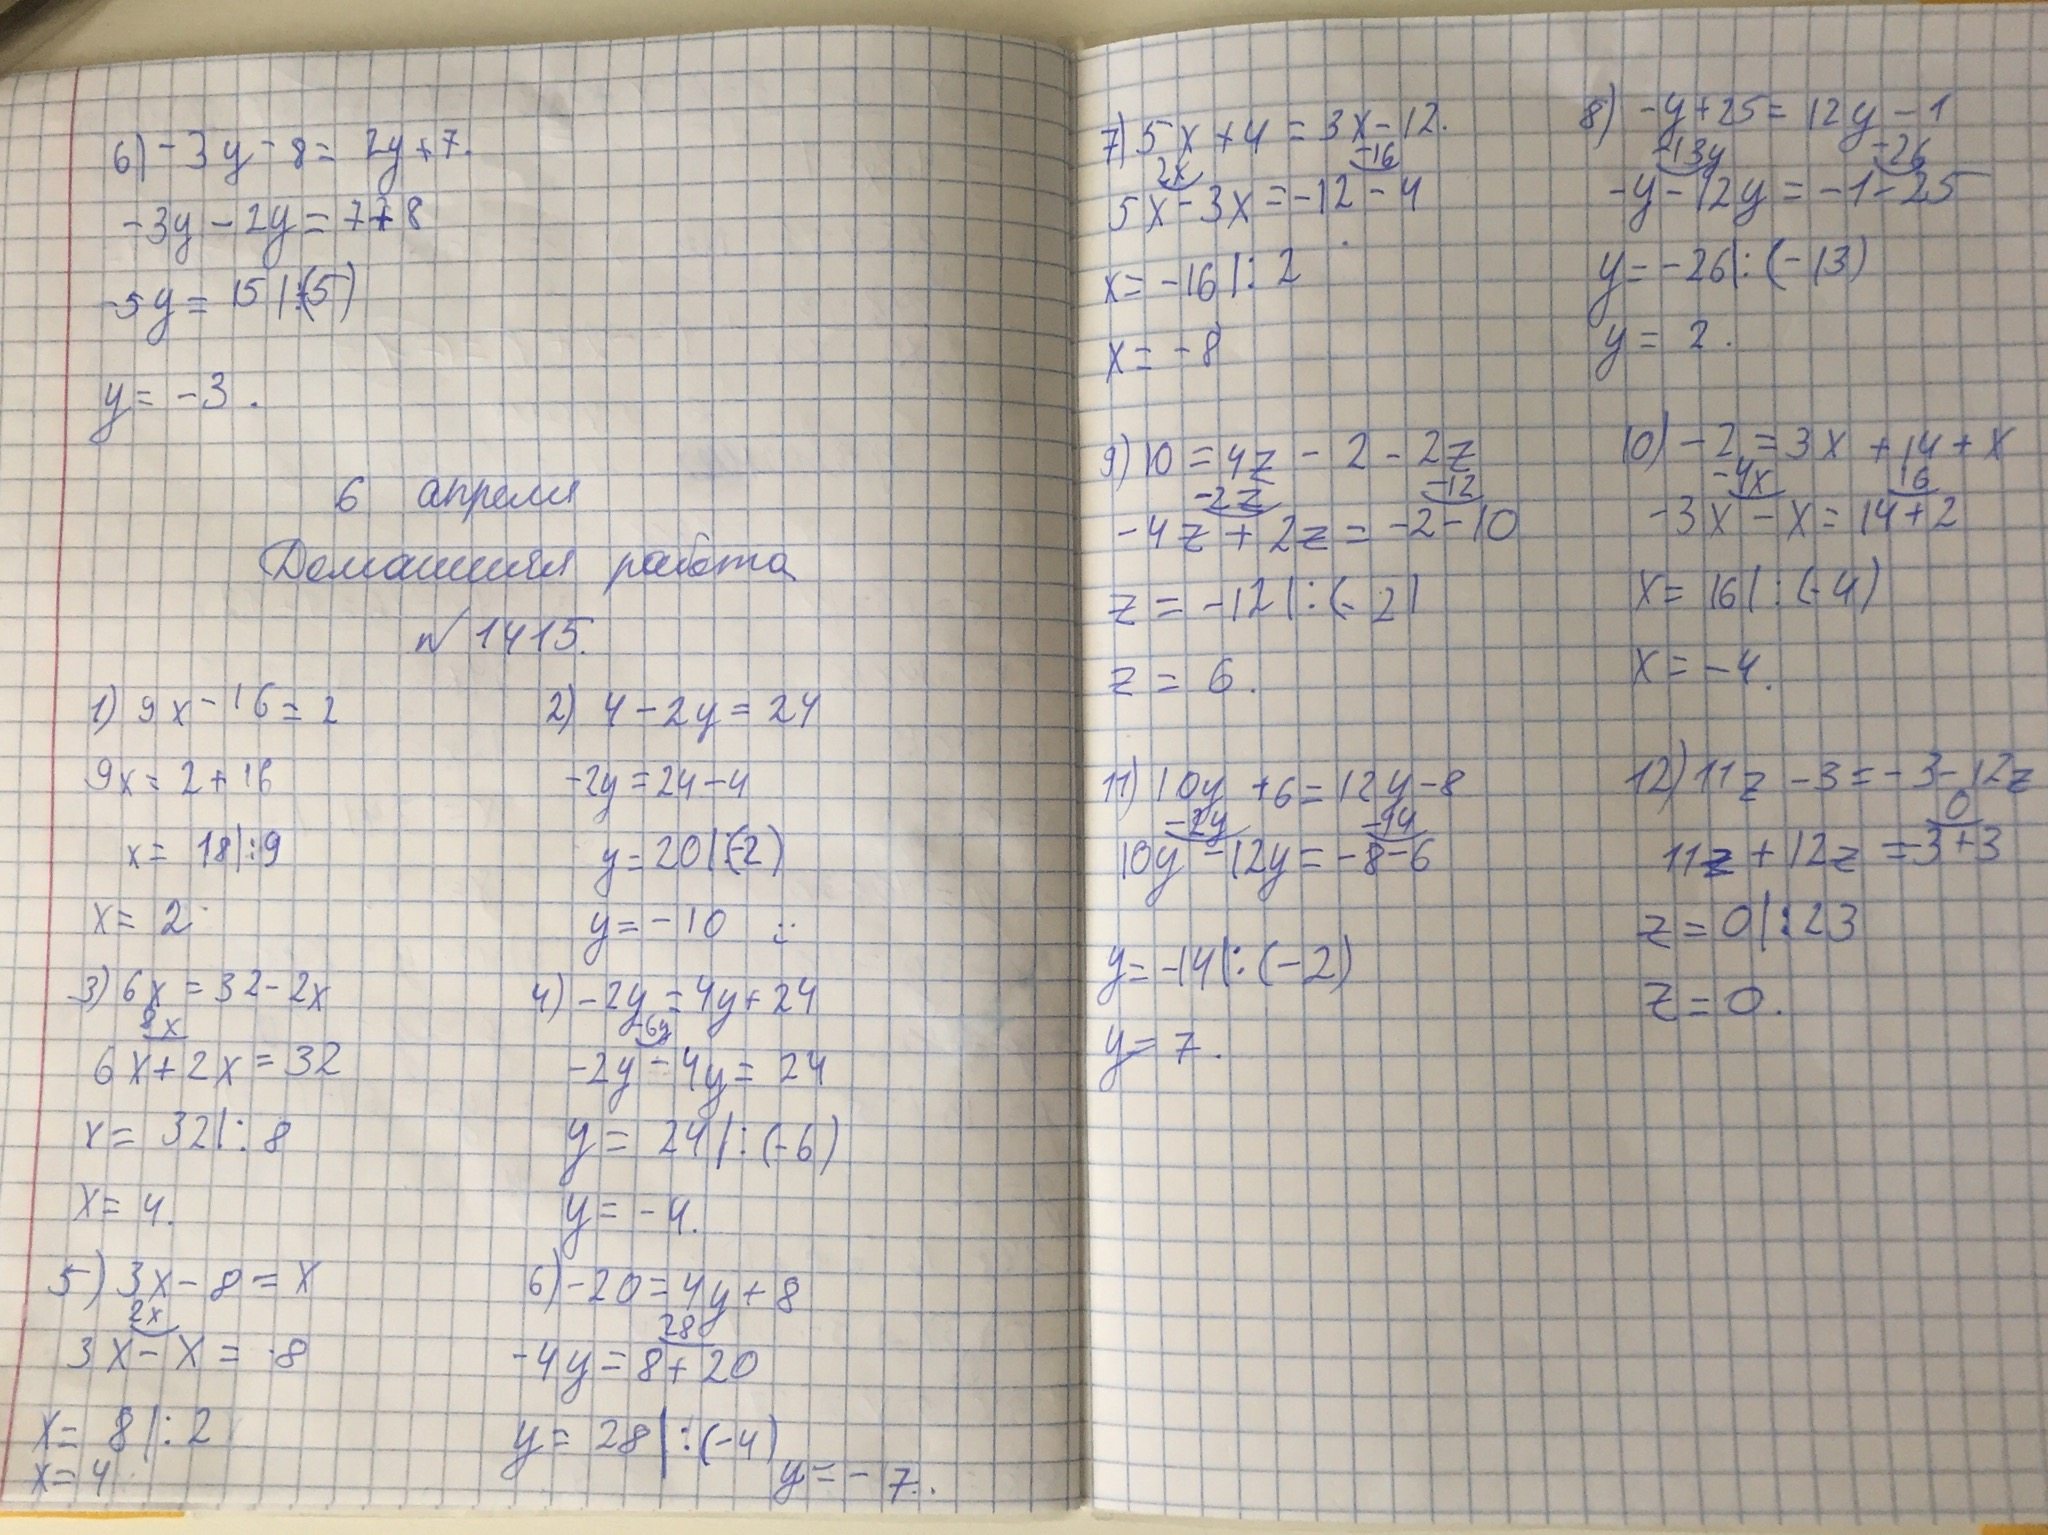 6) -3y - 8 = 2y + 7.
-3y - 2y = 7 + 8
-5y = 15 |:(-5)
y = -3.
6 апреля
Домашняя работа
№ 1415.
1) 9x - 16 = 2
9x = 2 + 16
x = 18 |:9
x = 2
2) 4 - 2y = 24
-2y = 24 - 4
y = 20 |:(-2)
y = -10
3) 6x = 32 - 2x
8x
6x + 2x = 32
x = 32 |: 8
x = 4.
4) -2y = 4y + 24
-6y
-2y - 4y = 24
y = 24 |: (-6)
y = -4.
5) 3x - 8 = x
2x
3x - x = 8
x = 8 |: 2
x = 4
6) -20 = 4y + 8
28
-4y = 8 + 20
y = 28 |: (-4)
y = -7.
7) 5x + 4 = 3x - 12.
2x -16
5x - 3x = -12 - 4
x = -16 |: 2
x = -8
8) -y + 25 = 12y - 1
-13y -26
-y - 12y = -1 - 25
y = -26 |: (-13)
y = 2.
9) 10 = 4z - 2 - 2z
-2z -12
-4z + 2z = -2 - 10
z = -12 |: (-2)
z = 6.
10) -2 = 3x + 14 + x
-4x 16
-3x - x = 14 + 2
x = 16 |: (-4)
x = -4.
11) 10y + 6 = 12y - 8
-2y -14
10y - 12y = -8 - 6
y = -14 |: (-2)
y = 7.
12) 11z - 3 = -3 - 12z
0
11z + 12z = -3 + 3
z = 0 |: 23
z = 0.